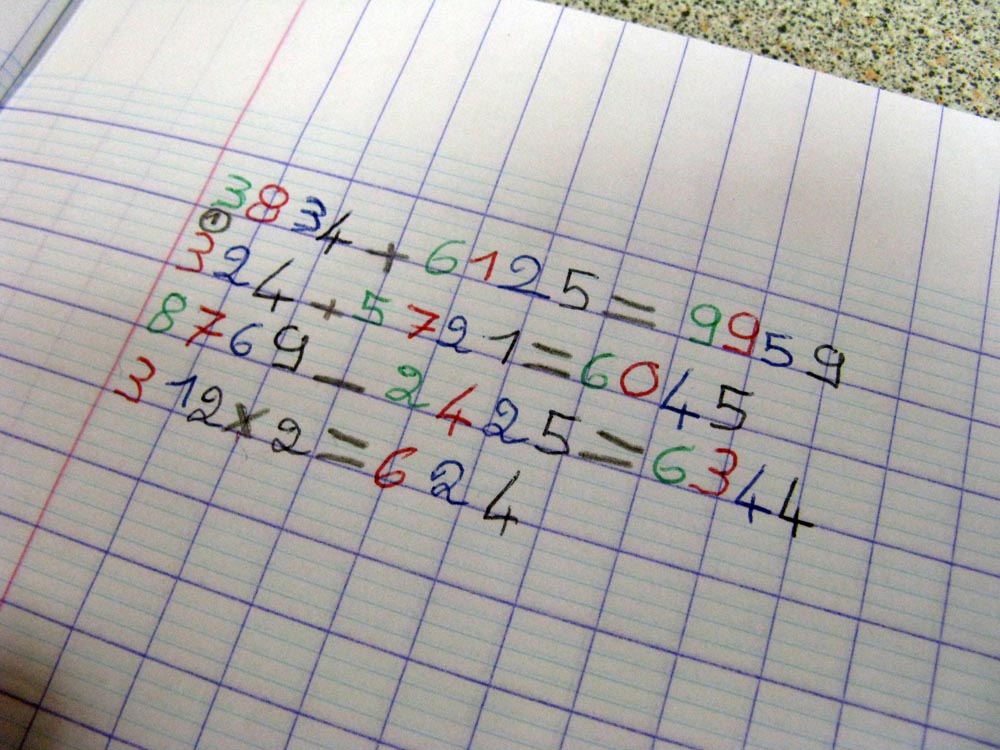 3834 + 6125 = 9959
①
324 + 5721 = 6045
8769 - 2425 = 6344
312 x 2 = 624